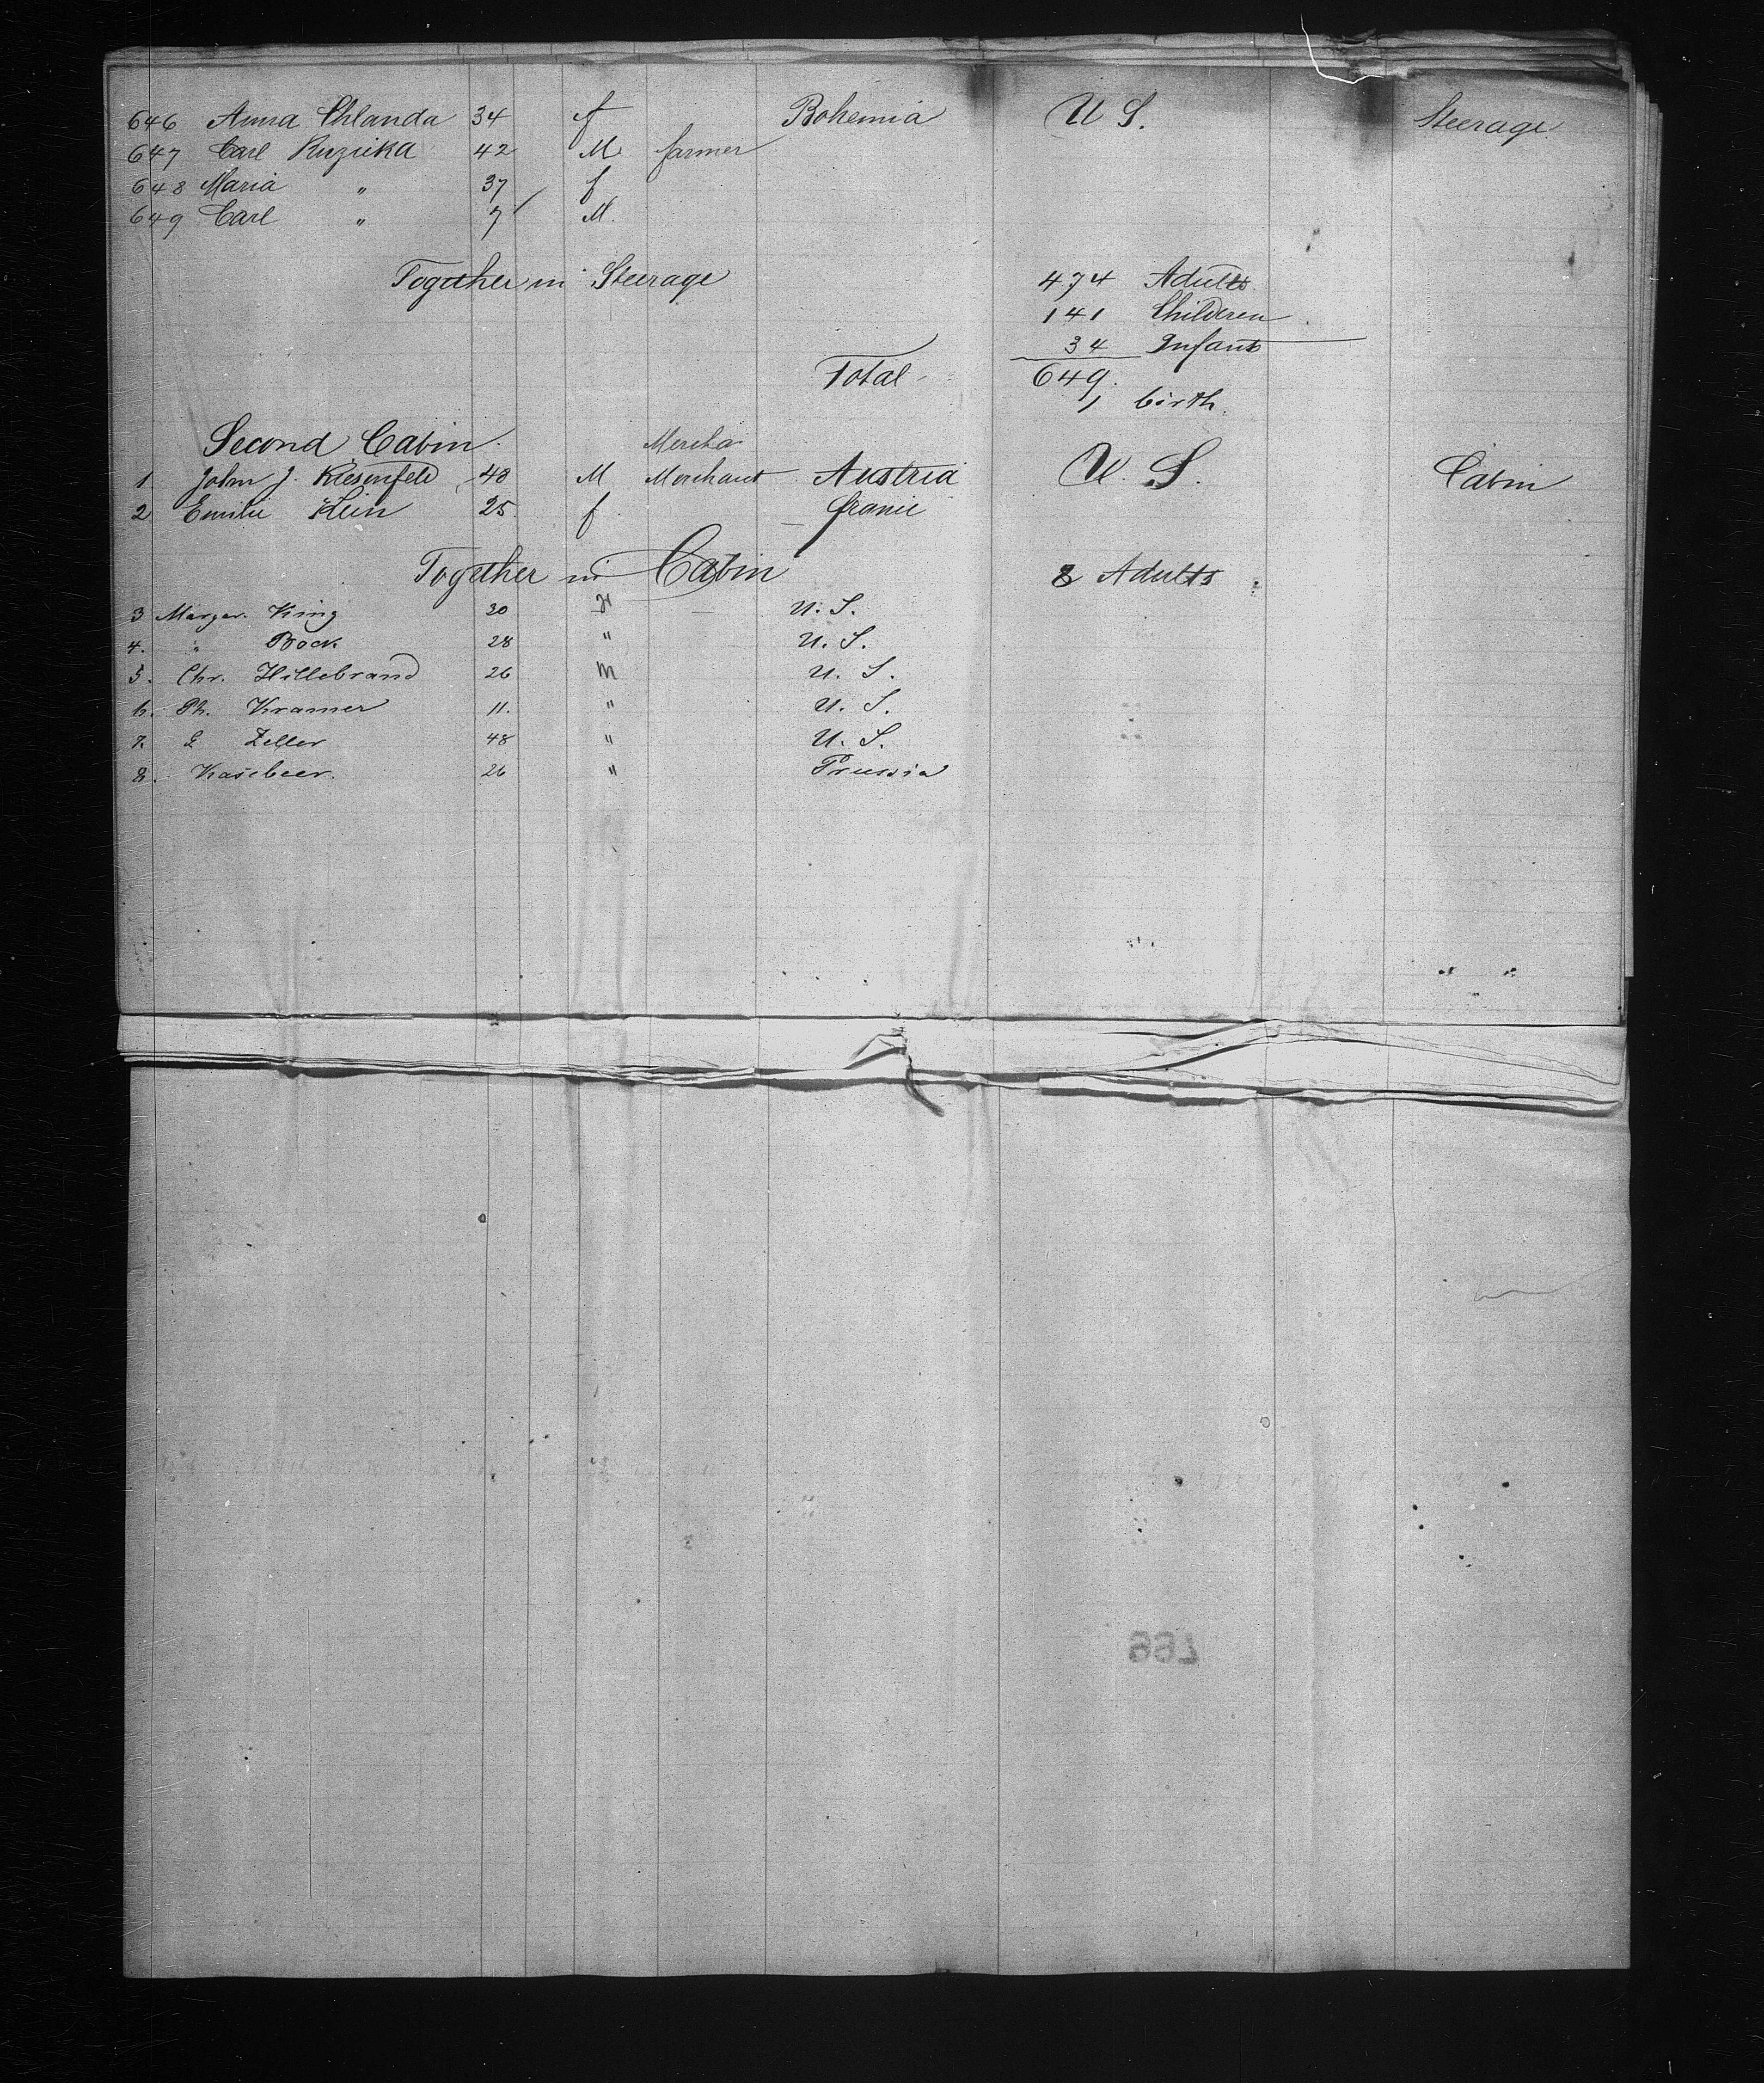 646 Anna Chlanda 34 f Bohemia U S. Steerage
647 Carl Ruzicka 42 M farmer
648 Maria " 37 f
649 Carl " 7 M.
Together in Steerage 474 Adults
141 Children
34 Infants
Total 649.
1 birth.
Second Cabin Mercha
1 John J. Riesenfeld 48 M Merchant Austria U. S. Cabin
2 Emilie Klein 25 f france
Together in Cabin 8 Adults
3 Margar. King 30 U. S.
4. " Bock 28 " U. S.
5. Chr. Hillebrand 26 m U. S.
6. Ph. Kramer 11. " U. S.
7. G Zeller 48 " U. S.
8. Kasebeer. 26 " Prussia